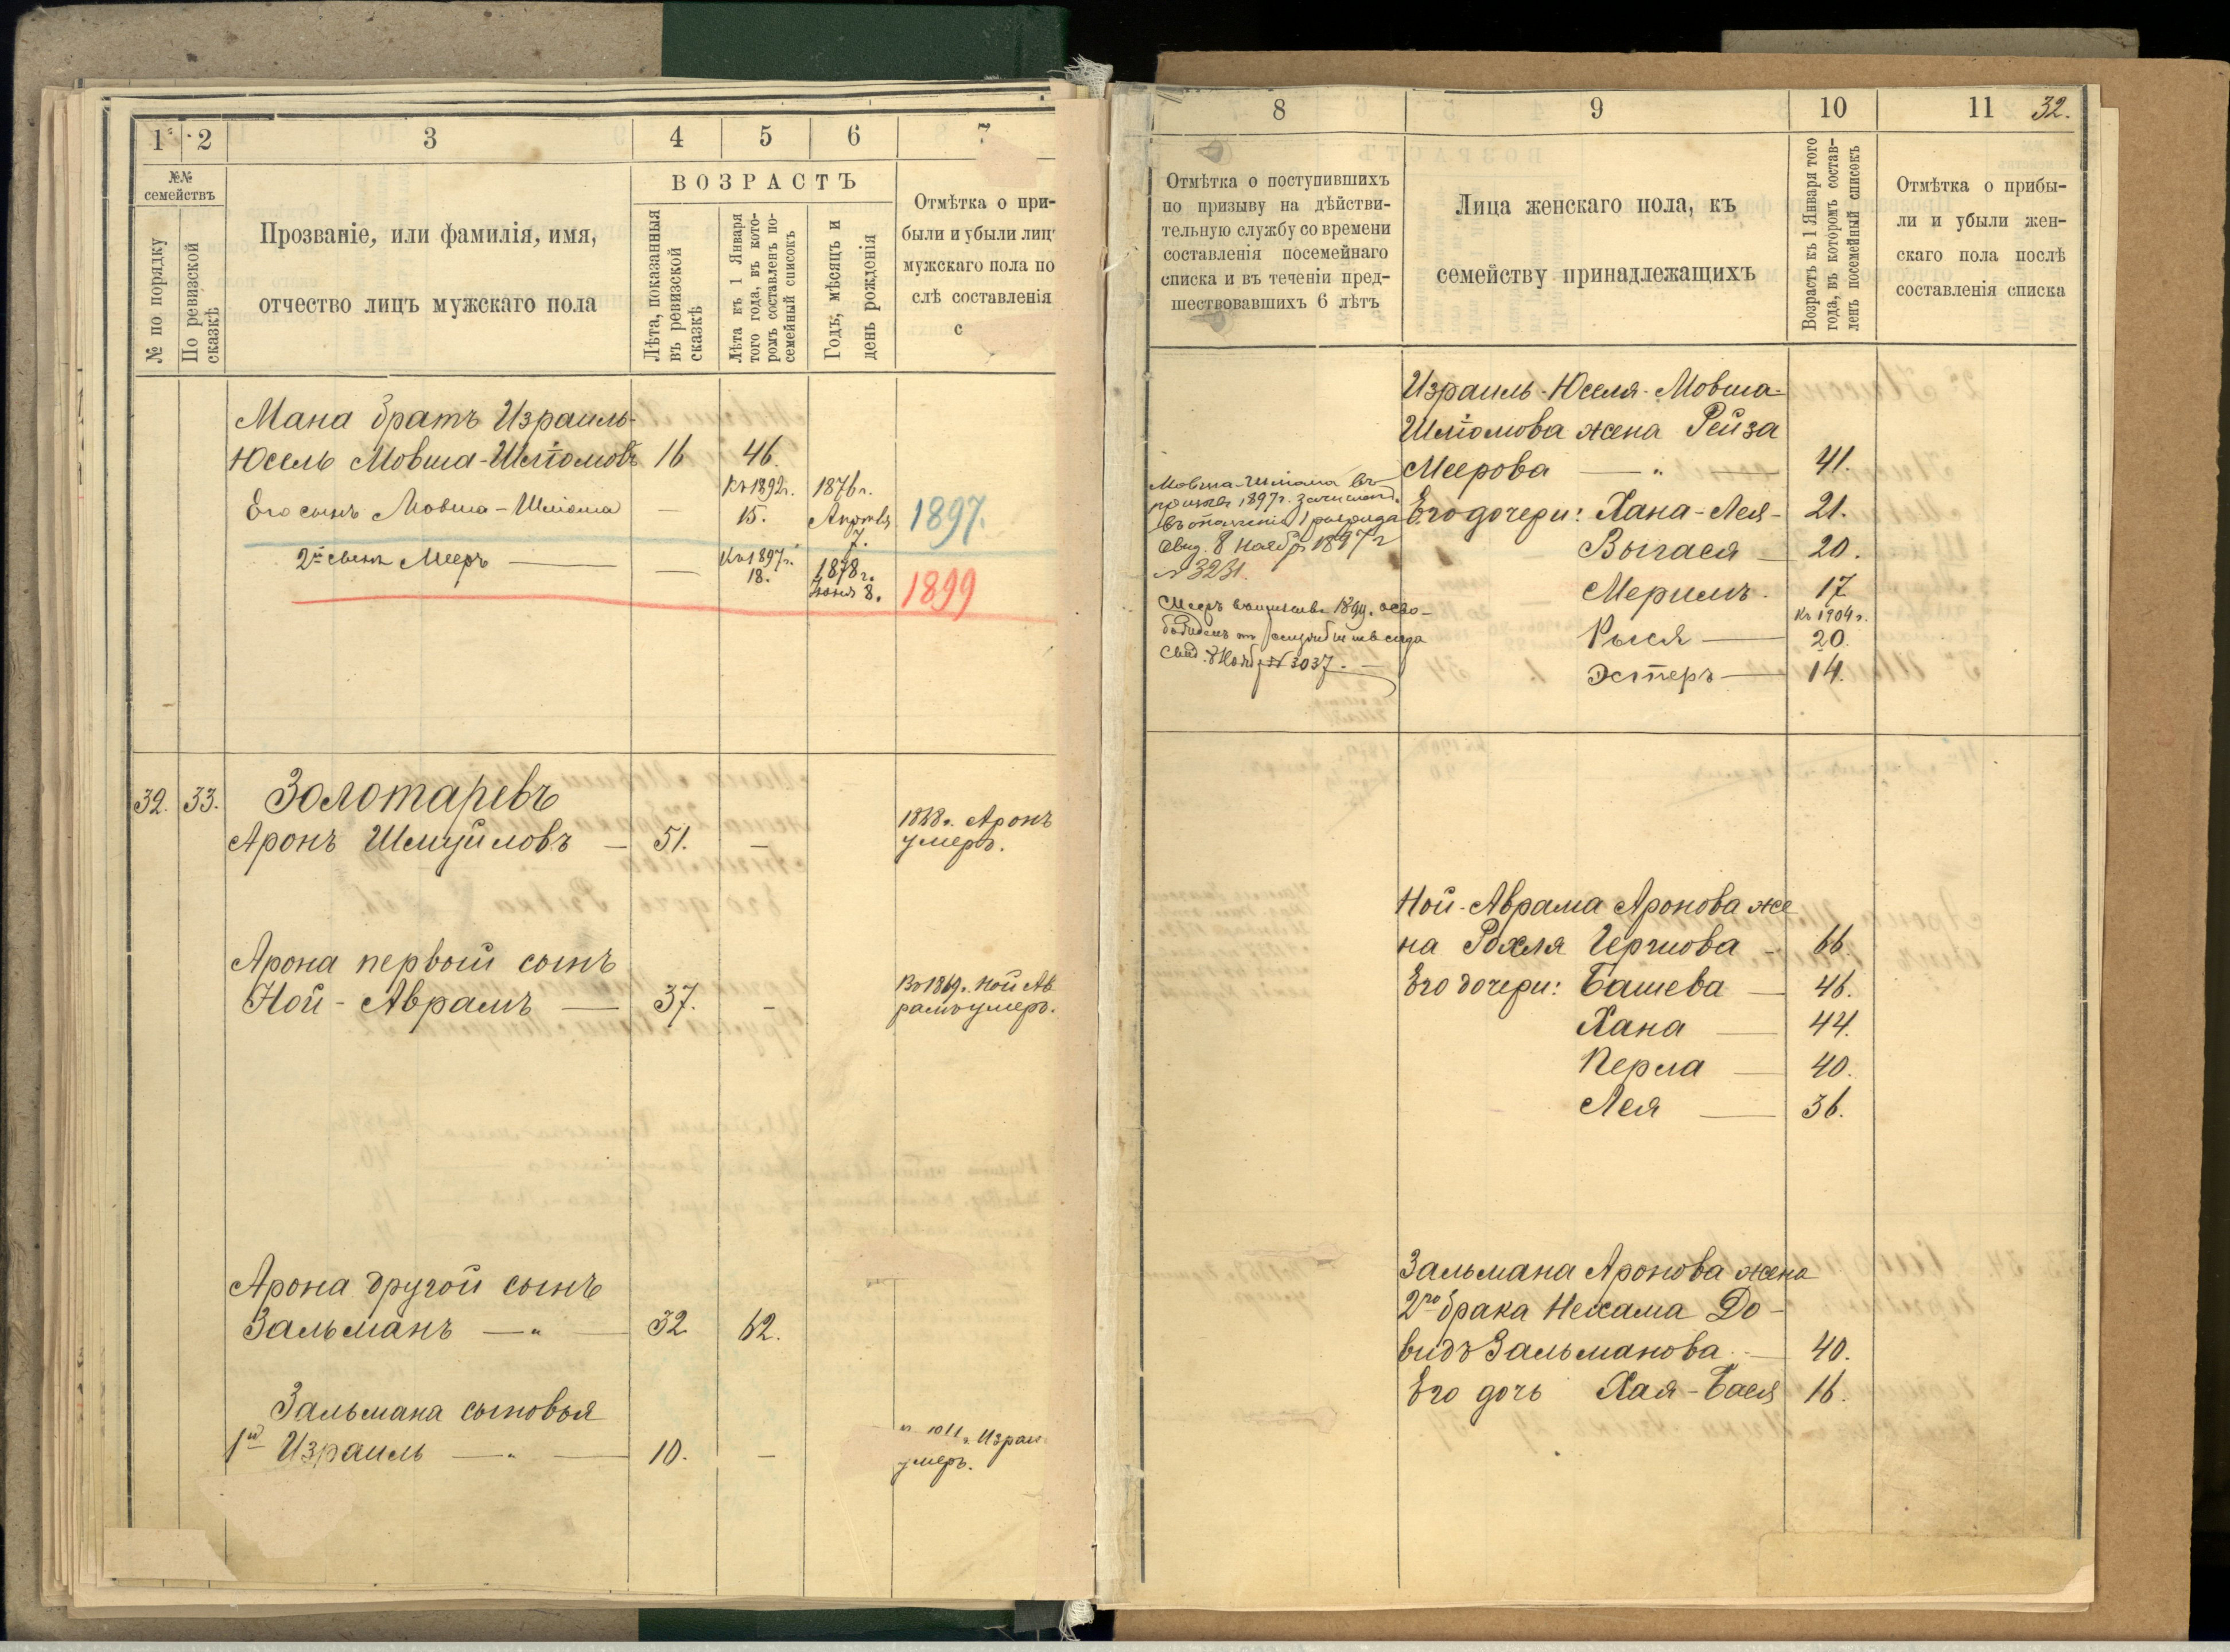 1 2 3 4 5 6 7
№№ семействъ
№ по порядку
По ревизской сказкѣ
Прозваніе, или фамилія, имя,
отчество лицъ мужскаго пола
ВОЗРАСТЪ
Лѣта, показанныя
въ ревизской
сказкѣ
Лѣта къ 1 Января
того года, въ кото-
ромъ составленъ по-
семейный списокъ
Годъ, мѣсяцъ и
день рожденія
Отмѣтка о при-
были и убыли лиц
мужскаго пола по
слѣ составленія
с
Мана братъ Израиль-
Юсель Мовша-Шліомовъ 16 46.
Его сынъ Мовша-Шліома — Къ 1892г. 15. 1876г. Апрѣля 7. 1897.
2й сынъ Мееръ — — Къ 1897г. 18. 1878г. Іюня 8. 1899
32. 33. Золотаревъ
Аронъ Шмуйловъ — 51. — 1868г. Аронъ
умеръ.
Арона первый сынъ
Ной-Аврамъ — 37. - Въ 1869г. Ной Ав
рамъ умеръ.
Арона другой сынъ
Зальманъ — " — 32 62.
Зальмана сыновья
1й Израиль — " — 10. — Израи
умеръ.
8 9 10 11 32.
Отмѣтка о поступившихъ
по призыву на дѣйстви-
тельную службу со времени
составленія посемейнаго
списка и въ теченіи пред-
шествовавшихъ 6 лѣтъ
Лица женскаго пола, къ
семейству принадлежащихъ
Возрастъ къ 1 Января того
года, въ которомъ состав-
ленъ посемейный списокъ
Отмѣтка о прибы-
ли и убыли жен-
скаго пола послѣ
составленія списка
Мовша-Шліома въ
призывъ 1897г. зачислен.
въ ополченіе 1 разряда
свид. 8 Ноябр 1897г
№ 3231.
Мееръ въ призывъ 1899. осво-
божденъ отъ службы
Свид. 8 Нояб. № 3037. —
Израиль-Юселя-Мовша-
Шліомова жена Рейза
Меерова — " — 41.
Его дочери: Хана-Лея - 21.
Выгася — 20.
Меримъ. 17
Рыся — Къ 1904г. 20.
Эстеръ — 14.
Ной-Аврама Аронова же
на Рохля Гершова - 66.
Его дочери: Башева — 46.
Хана — 44.
Перла — 40.
Лея — 36.
Зальмана Аронова жена
2го брака Нехама До-
видъ Зальманова — 40.
Его дочь Хая-Бася 16.